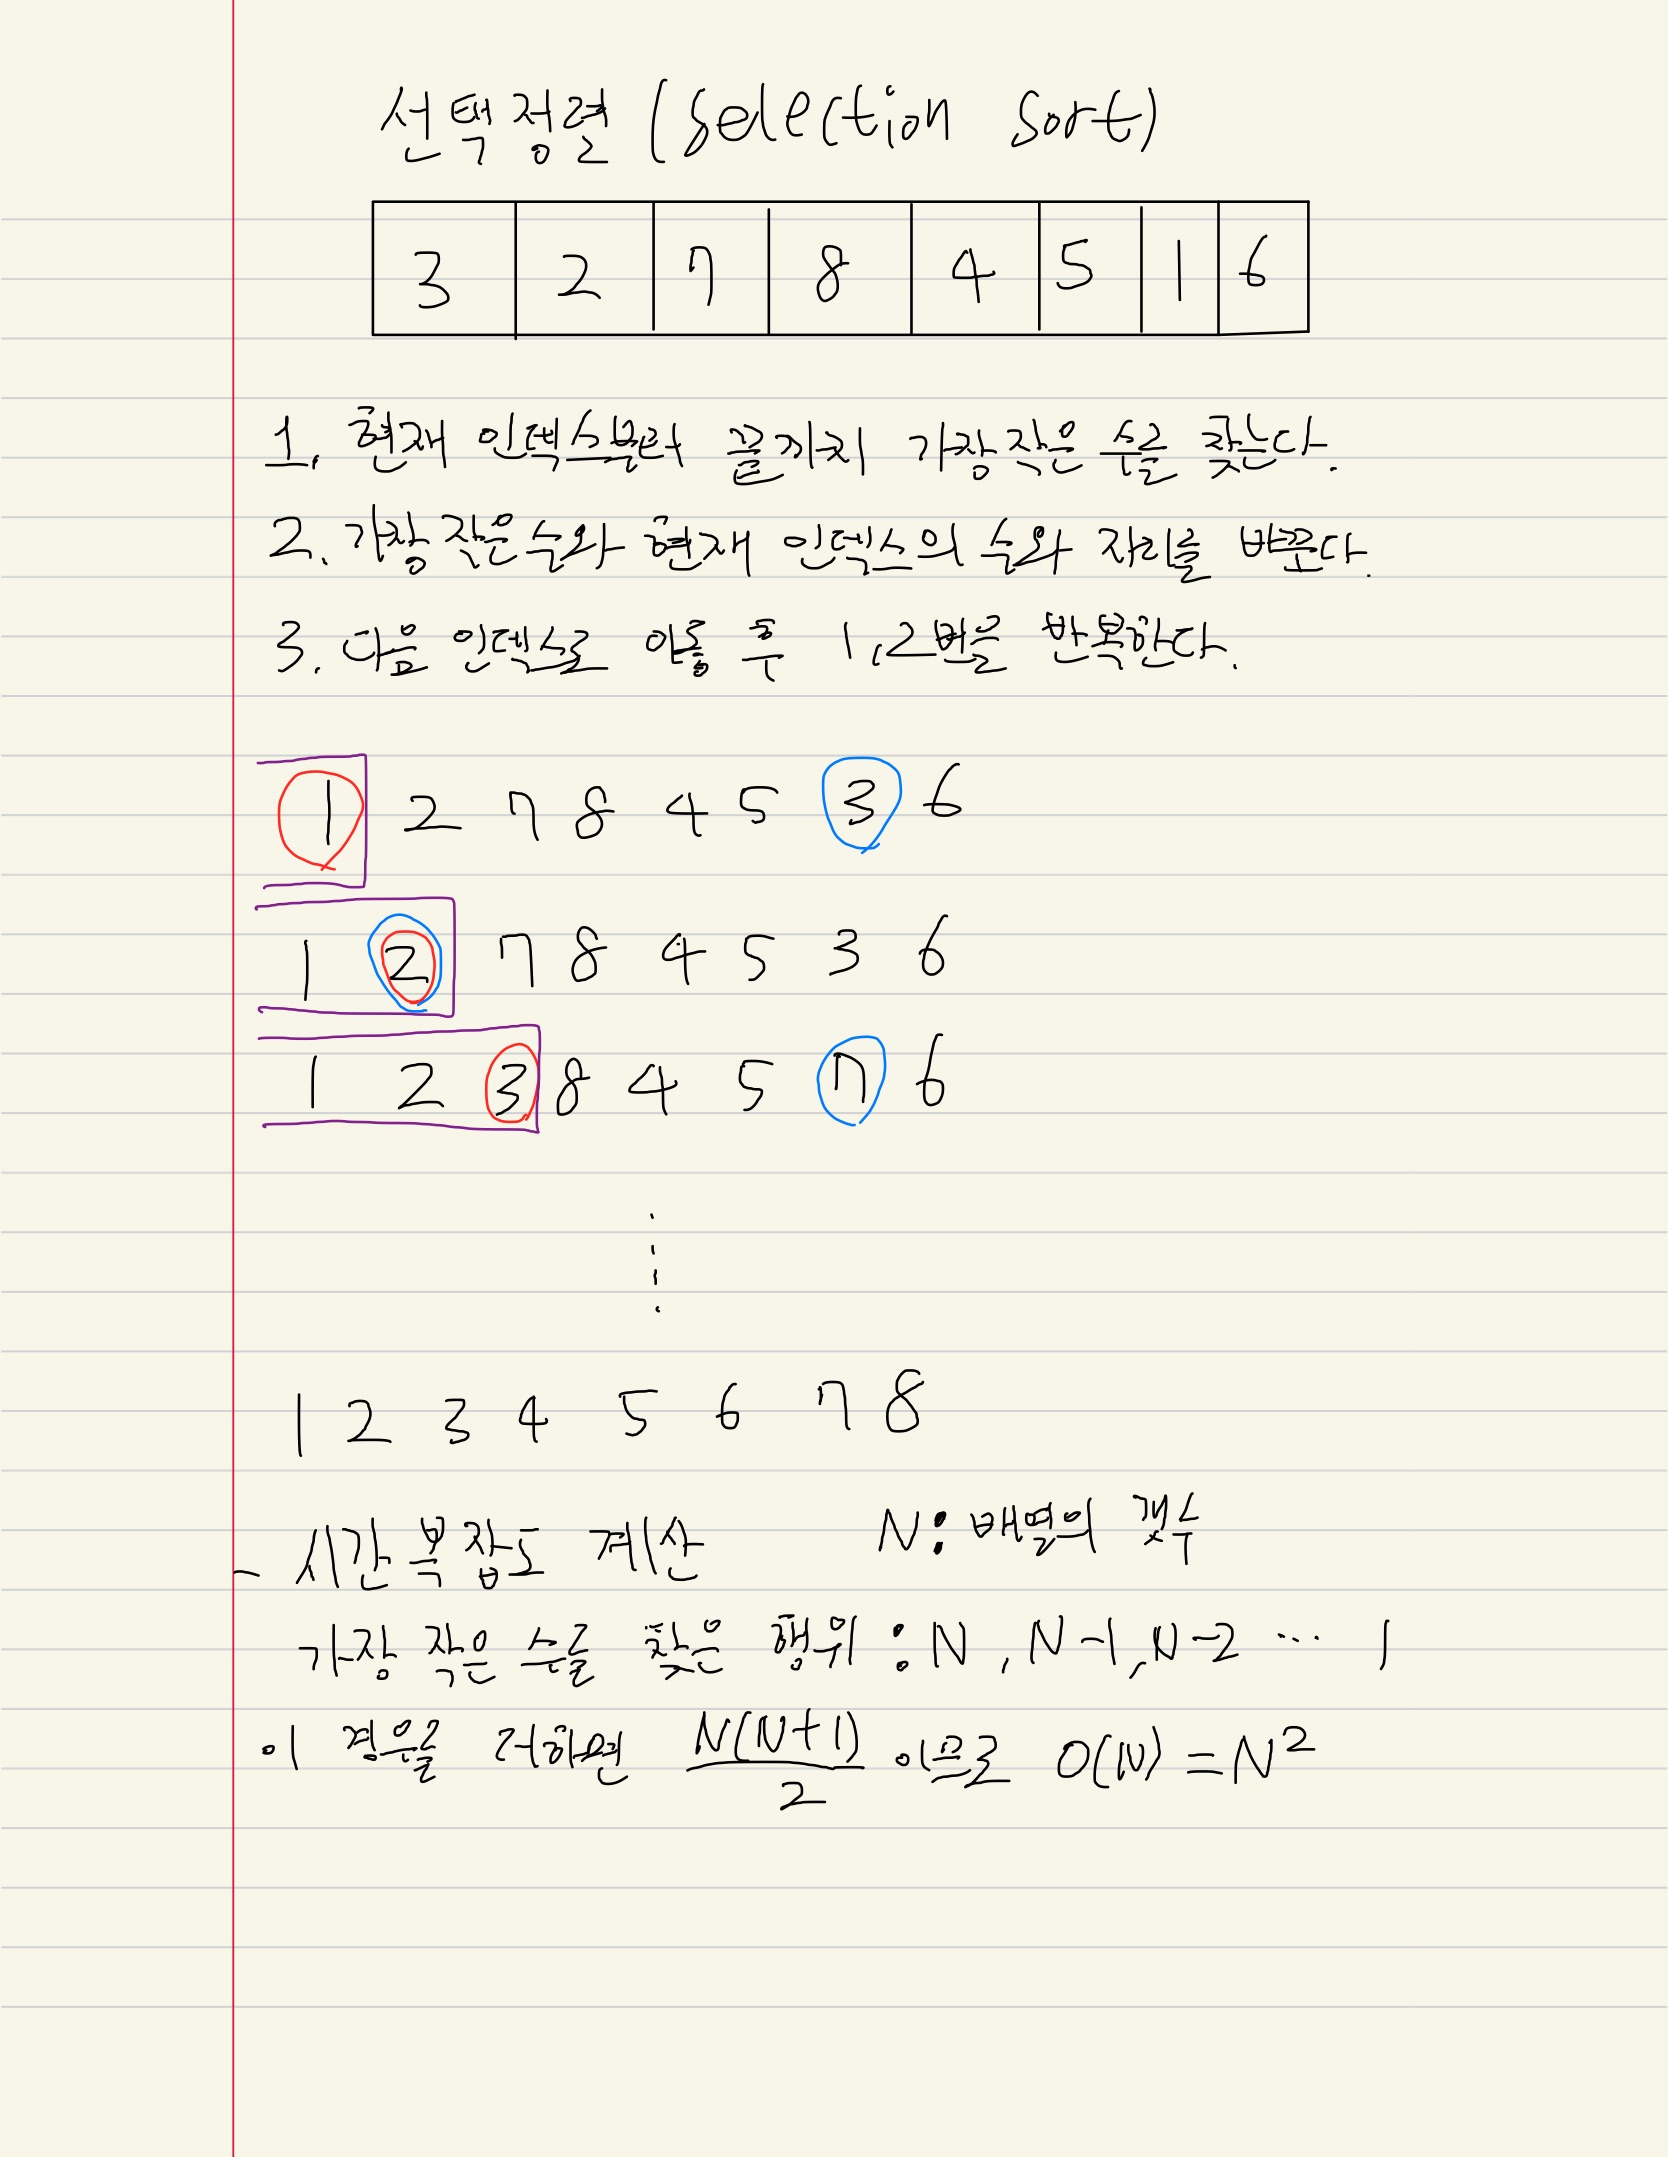 선택정렬 (Selection Sort)
3 2 7 8 4 5 1 6
1. 현재 인덱스부터 끝까지 가장 작은 수를 찾는다.
2. 가장 작은 수와 현재 인덱스의 수와 자리를 바꾼다.
3. 다음 인덱스로 이동 후 1,2번을 반복한다.
1 2 7 8 4 5 3 6
1 2 7 8 4 5 3 6
1 2 3 8 4 5 7 6
1 2 3 4 5 6 7 8
- 시간 복잡도 계산 N: 배열의 갯수
가장 작은 수를 찾은 행위 : N, N-1, N-2 ... 1
이 경우를 더하면 N(N+1)/2 이므로 O(N) = N²